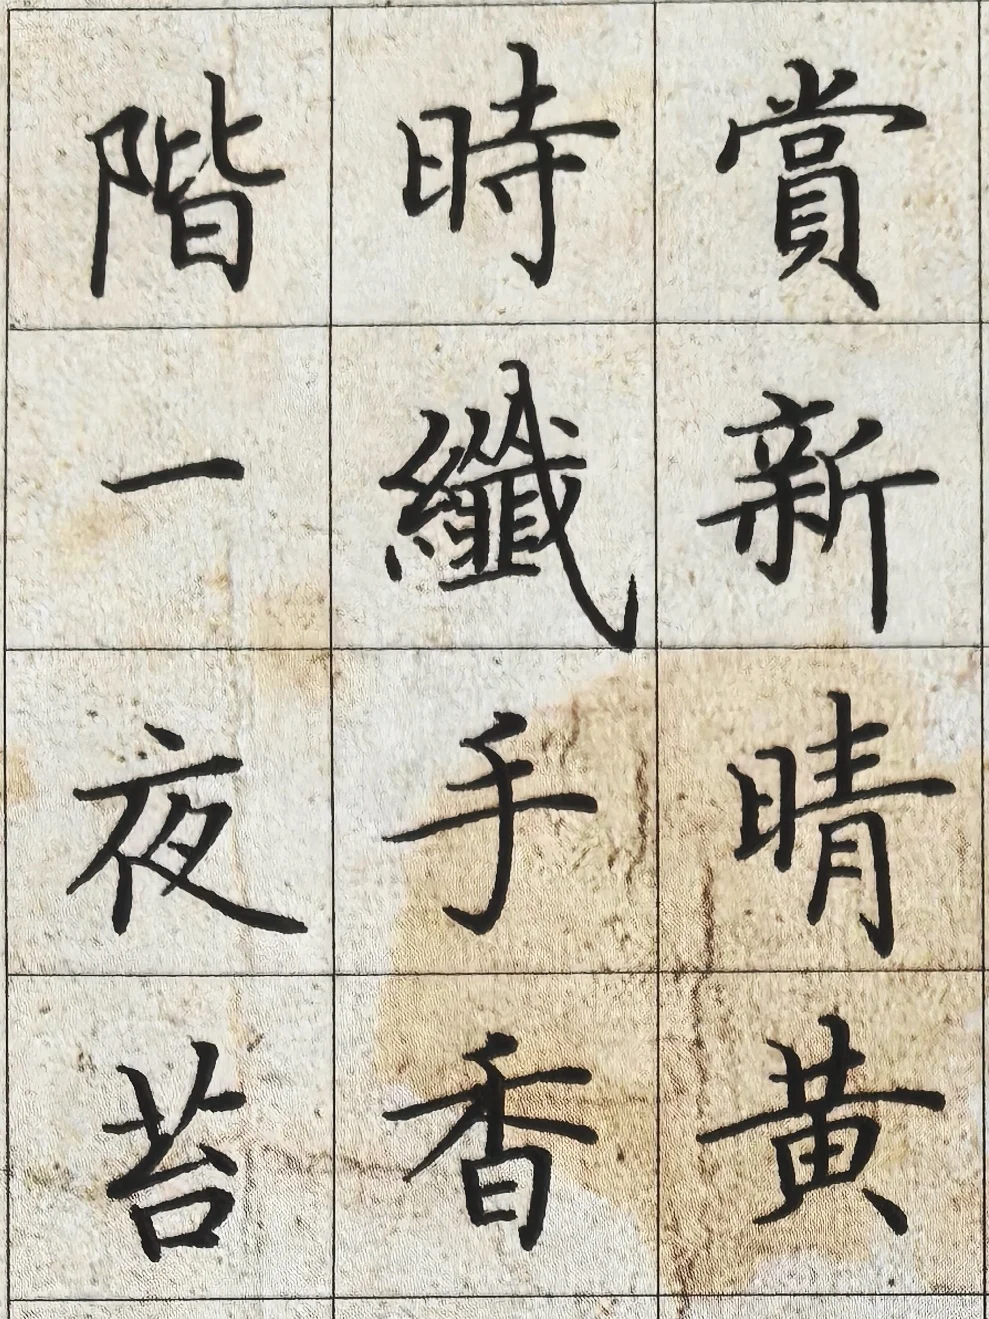 賞新晴黄
時纖手香
階一夜苔